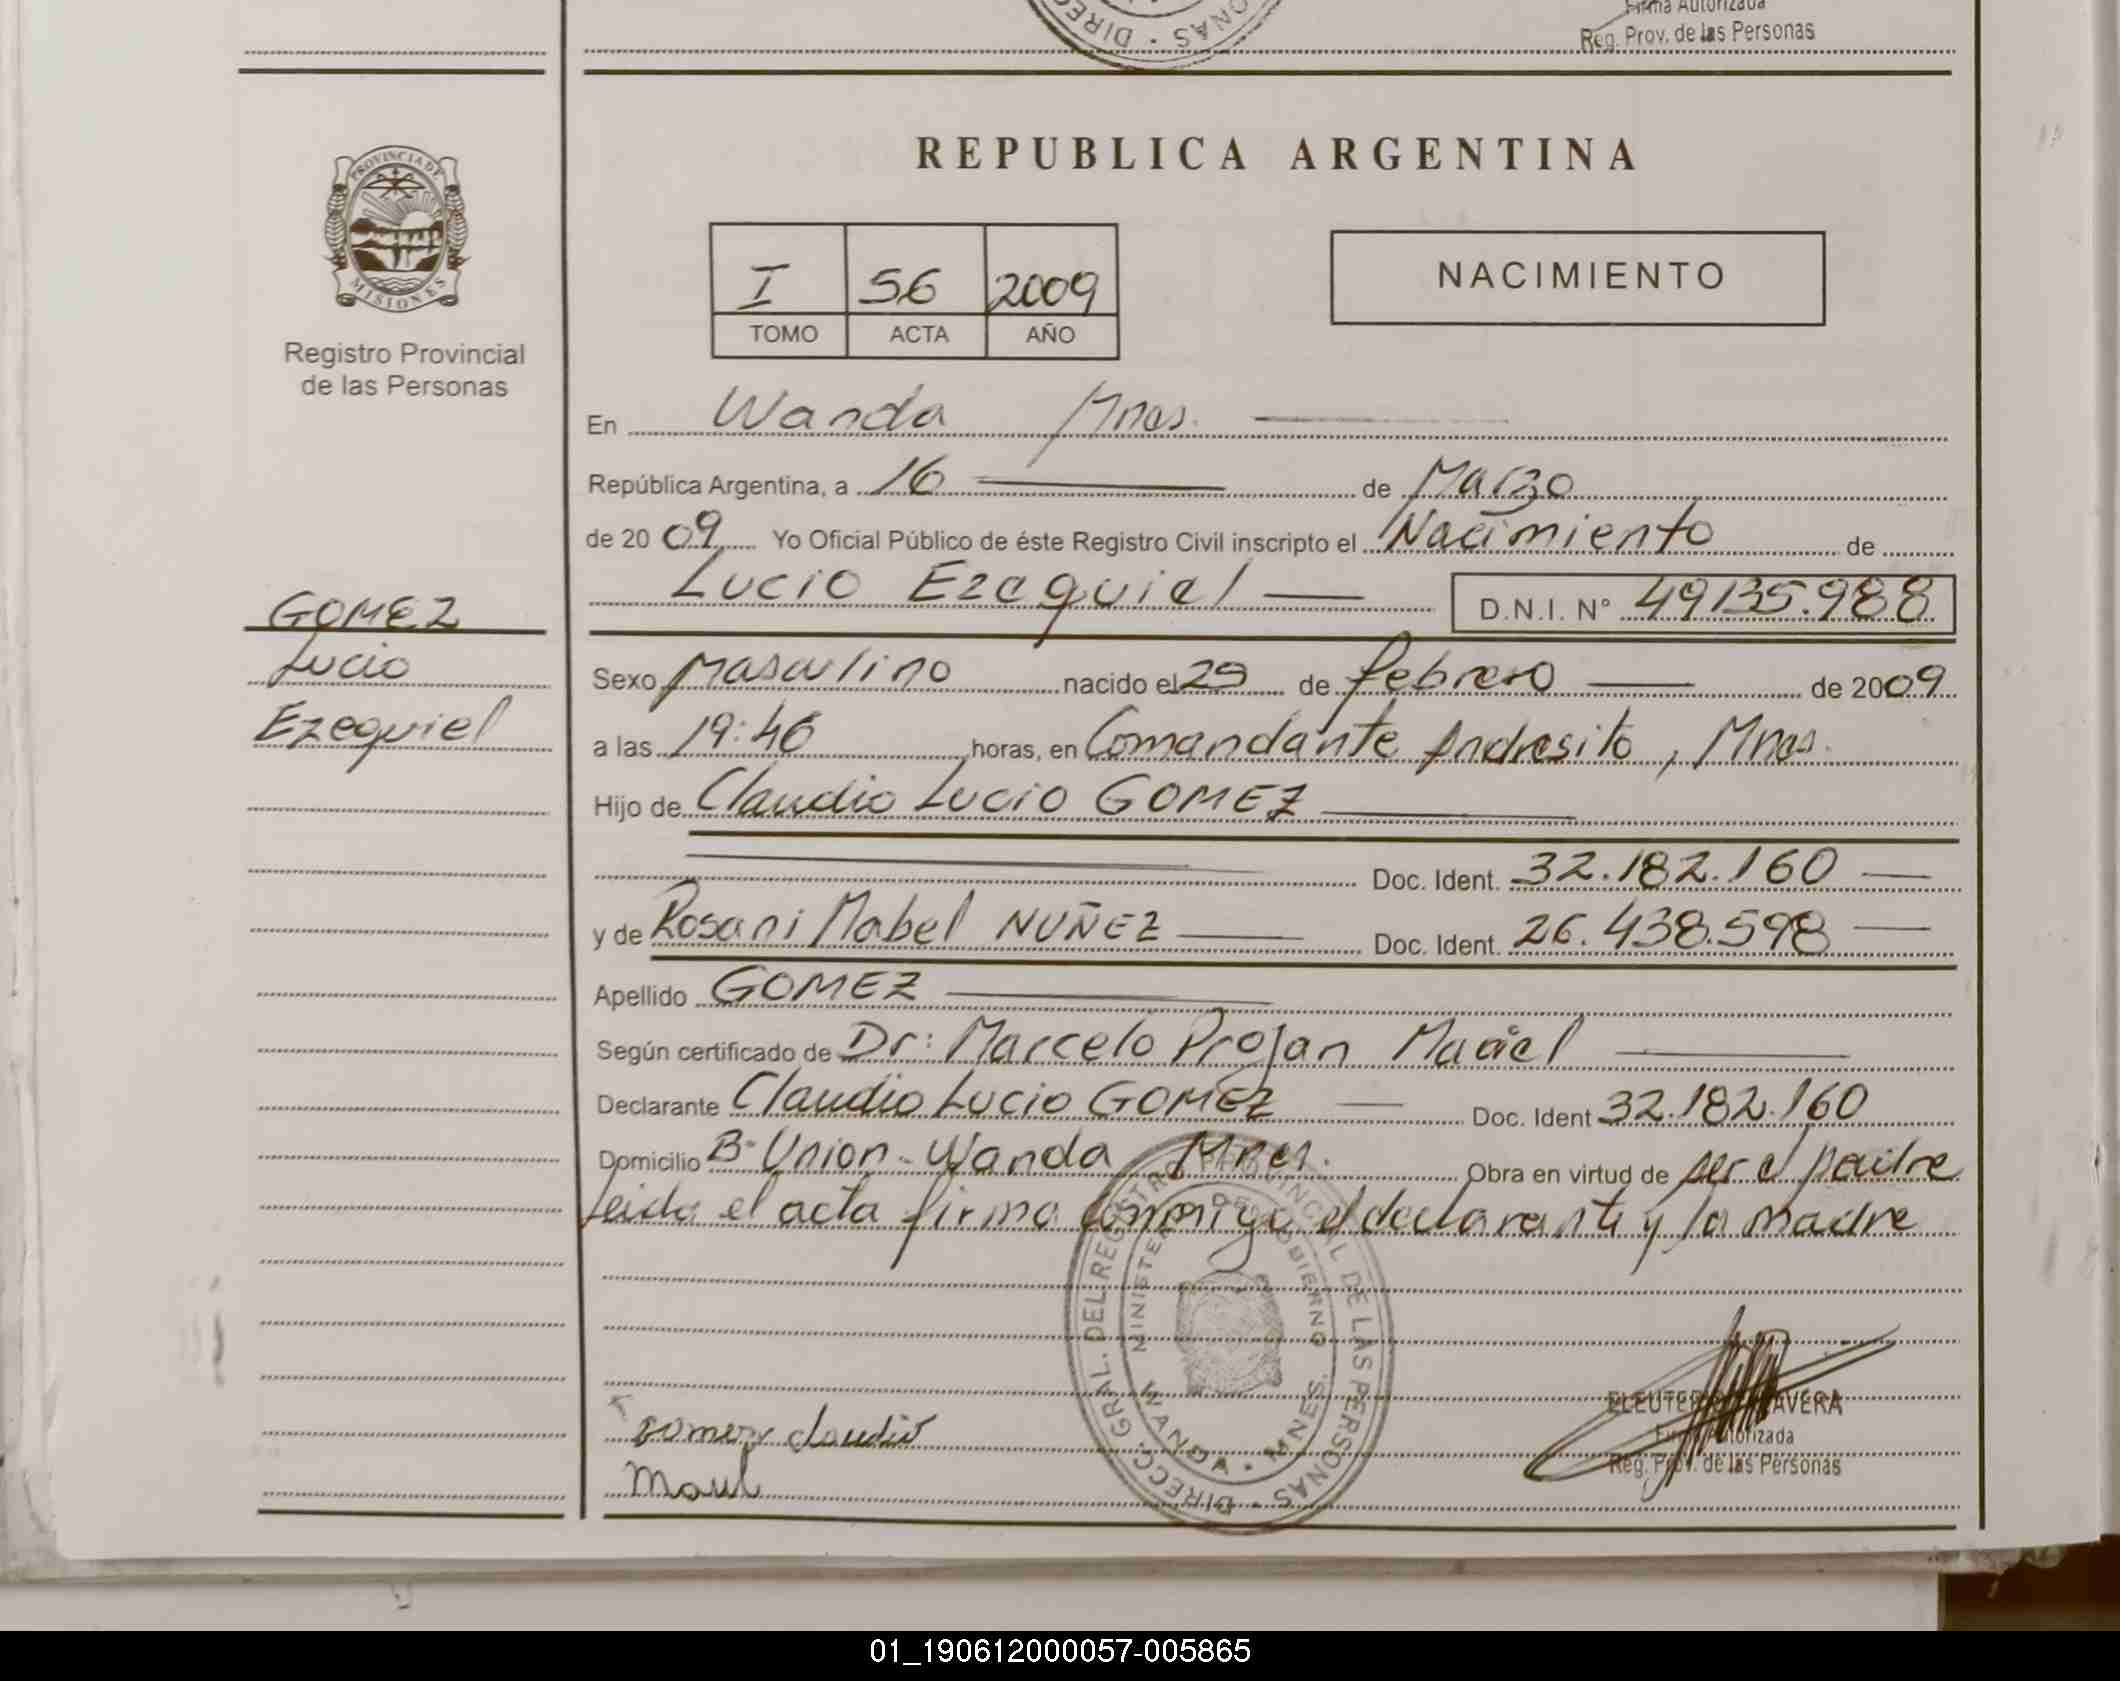 Firma Autorizada
Reg. Prov. de las Personas
REPUBLICA ARGENTINA
PROVINCIA DE
MISIONES
Registro Provincial
de las Personas
I 56 2009
TOMO ACTA AÑO
NACIMIENTO
En Wanda Mnes.
República Argentina, a 16 de Marzo
de 2009 Yo Oficial Público de éste Registro Civil inscripto el Nacimiento de
Lucio Ezequiel D.N.I. N° 49135.988
GOMEZ
Lucio
Ezequiel
Sexo Masculino nacido el 29 de febrero de 2009
a las 19:46 horas, en Comandante Andresito, Mnes.
Hijo de Claudio Lucio GOMEZ
Doc. Ident. 32.182.160
y de Rosani Mabel NUÑEZ Doc. Ident. 26.438.598
Apellido GOMEZ
Según certificado de Dr: Marcelo Maciel
Declarante Claudio Lucio GOMEZ Doc. Ident 32.182.160
Domicilio B° Union - Wanda Mnes. Obra en virtud de ser el padre
leida el acta firma conmigo el declarante y la madre
DIRECC. GRAL. DEL REGISTRO PROVINCIAL DE LAS PERSONAS
MINISTERIO DE GOBIERNO
WANDA - MNES.
Gomez Claudio
Firma Autorizada
Reg. Prov. de las Personas
01_190612000057-005865